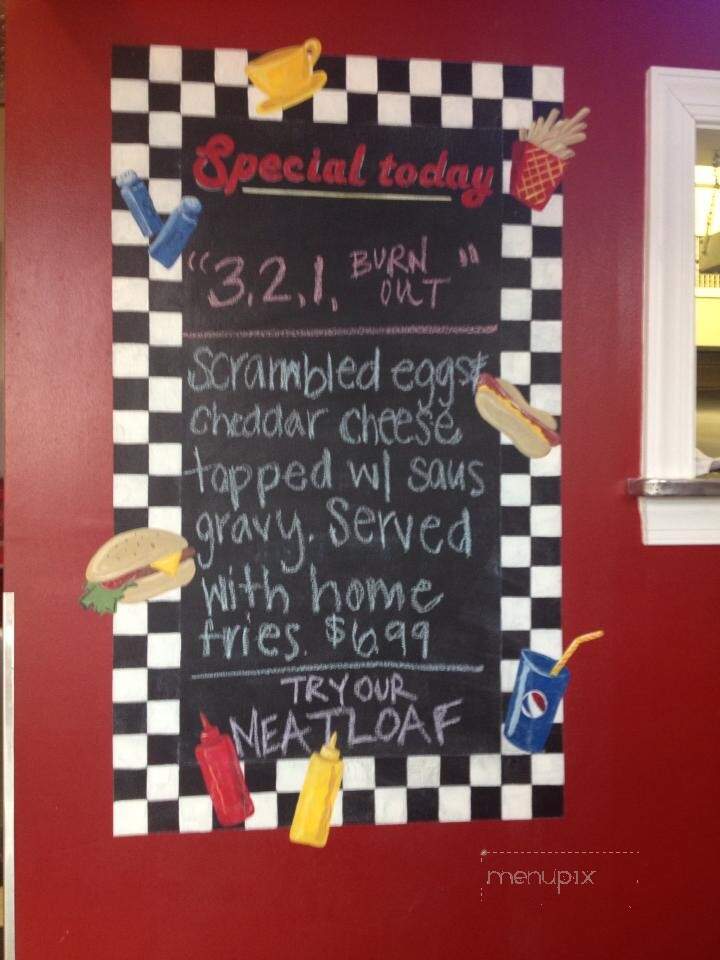 Special today
"3.2.1. BURN OUT"
Scrambled eggs &
cheddar cheese
topped w/ saus
gravy. Served
with home
fries. $6.99
TRY OUR
MEATLOAF
menupix